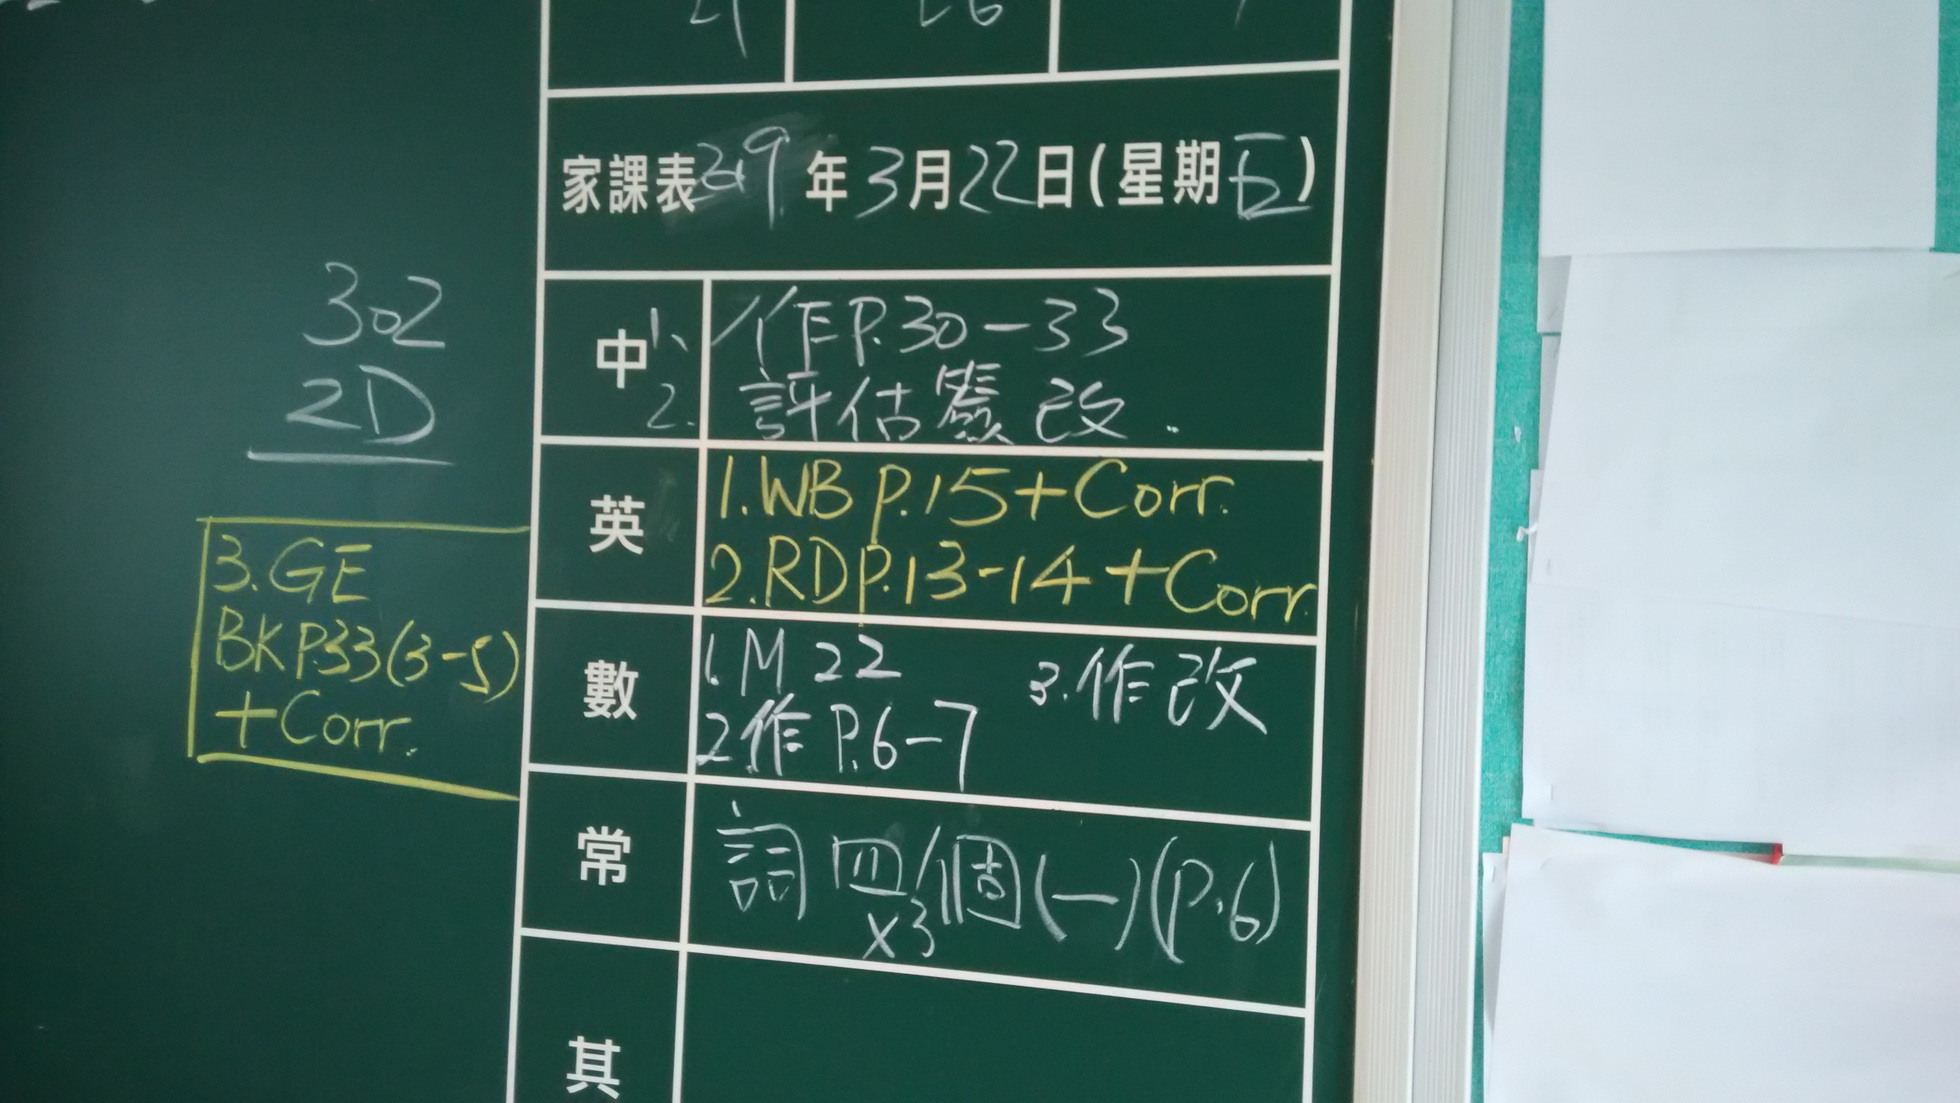 家課表2019年3月22日(星期五)
302
2D
中
1. 作P.30-33
2. 評估簽改.
英
1.WB p.15+Corr.
2.RD p.13-14+Corr.
3.GE
BK P.33(3-5)
+Corr.
數
1.M 22
3.作改
2.作 P.6-7
常
詞四個(一)(P.6)
x3
其